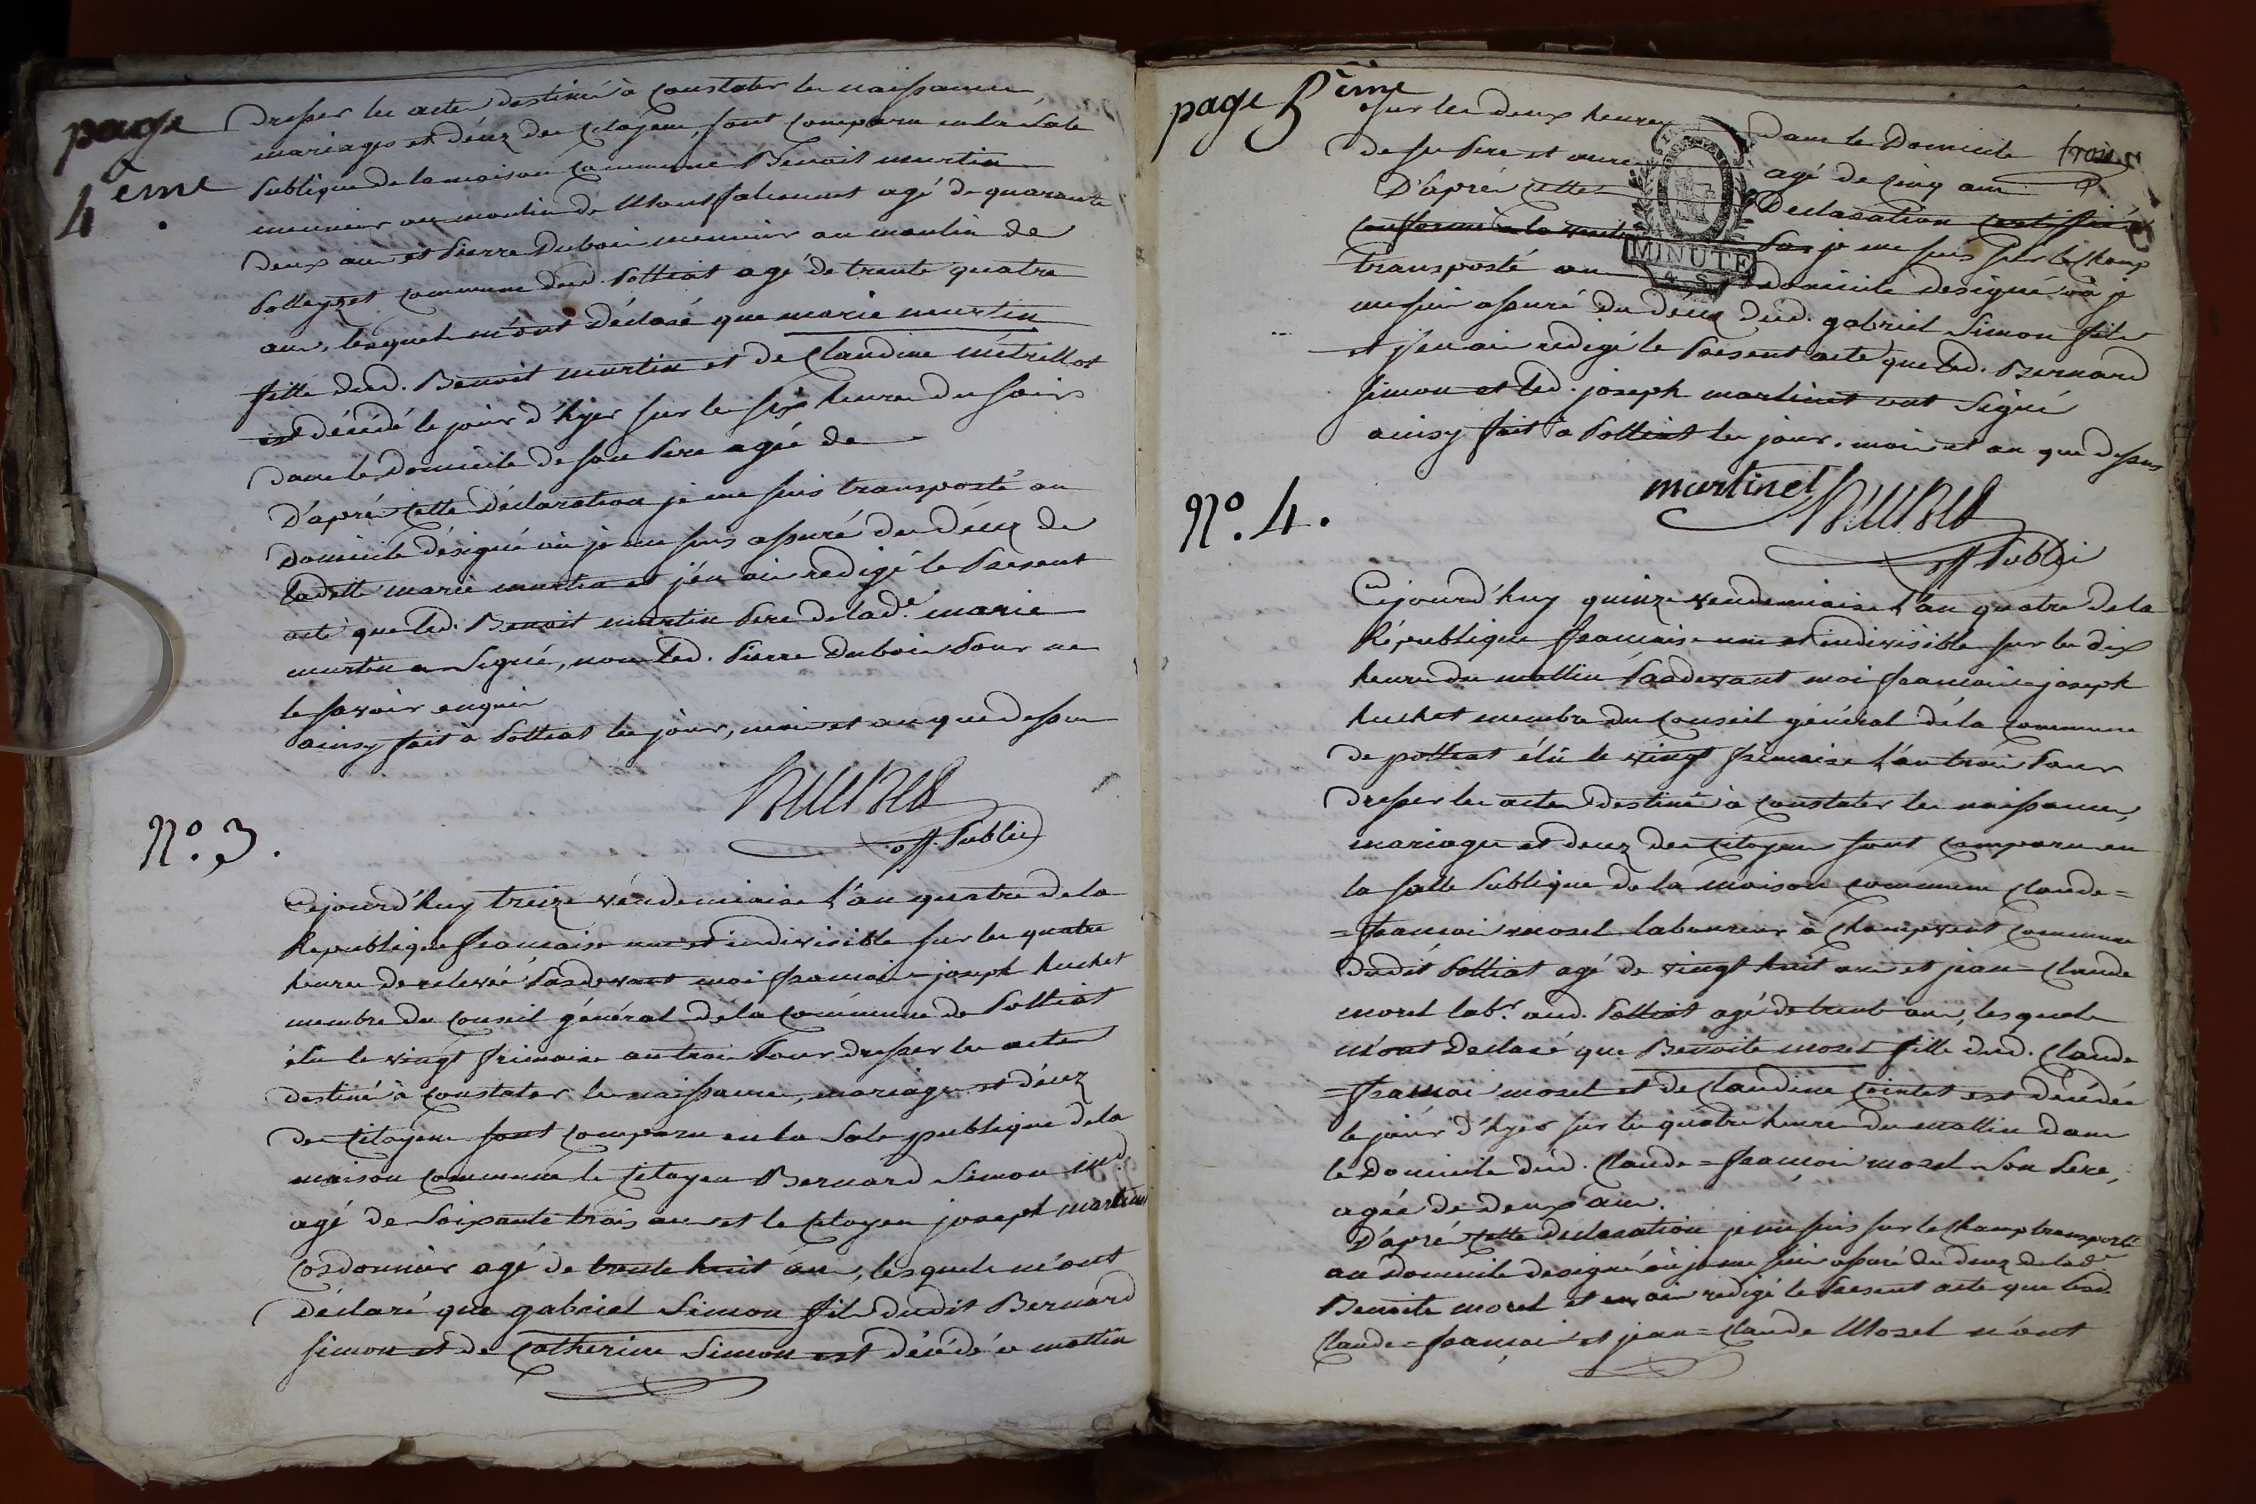 page
4ème
dresser les actes destiné à constater les naissances
mariages et décez des citoyens, sont comparu en la sale
publique de la maison commune Benoit murtin
meunier au moulin de agé de quarante
deux ans et Pierre Dubois meunier au moulin de
commune dud. Polliat agé de trente quatre
ans, lesquels m'ont déclaré que marie murtin
fille dud. Benoit murtin et de Claudine
est décédé le jour d'hyer sur les six heures du soir
dans le domicile de son Pere agée de
D'après cette déclaration je me suis transposté au
domicile désigné où je me suis assuré du décez de
ladette marie murtin et j'en ai redigé le Present
acte que led. Benoit murtin Pere de lade. marie
murtin a Signé, non led. Pierre dubois Pour ne
le savoir enquis
ainsy fait à Polliat les jour, mois et an que dessus
huchet
off. Public
N°. 3.
Cejourd'huy treize véndemiaire l'an quatre de la
Republique française une et indivisible sur les quatre
heures de relevée Pardevant moi francois=joseph huchet
membre du conseil général de la commune de Polliat
élu le vingt frimaire an trois Pour dresser les actes
destiné à constater les naissances, mariages et décez
des Citoyens sont comparu en la Sale publique de la
maison commune le Citoyen Bernard Simon md.
agé de Soixante trois ans et le Citoyen joseph martinet
Cordonnier agé de trente huit ans, lesquels m'ont
déclaré que gabriel Simon fils dudit Bernard
Simon et de Catherine Simon est décédé ce mattin
page 5ème
sur les deux heures dans le Domicile trois
de su Pere et agé de cinq ans
D'après cette Declaration certiffié
conforme a la verité Par je me suis sur le champ
transposté au domicile designé où je
me suis assuré du décez dud. gabriel Simon fils
et j'en ai redigé le Present acte que led. Bernard
Simon et led. joseph martinet ont Signé
ainsy fait à Polliat les jour, mois et an que dessus
MINUTE
martinet huchet
off Public
N°. 4.
Cejourd'huy quinze vendemiaire l'an quatre de la
République française une et indivisible sur les dix
heures du mattin Pardevant moi francois=joseph
huchet membre du conseil général de la commune
de polliat élu le vingt frimaire l'an trois Pour
dresser les actes destiné à constater les naissances,
mariages et decez des Citoyens sont comparu en
la salle Publique de la maison commune Claude=
=francois morel laboureur à Champvent commune
dudit Polliat agé de vingt huit ans et jean=Claude
morel labr. aud. Polliat agé de trente ans, lesquels
m'ont Declaré que Benoite morel fille dud. Claude
=francois morel et de Claudine Cointet est décédée
le jour d'hyer sur les quatre heures du mattin dans
le Domicile dud. Claude=francois morel son Pere,
agée de deux ans.
D'après cette déclaration je me suis sur le champ transporté
au domicile designé où je me suis assuré du decez de lade.
Benoite morel et en ai redigé le Present acte que lesd.
Claude=francois et jean=Claude Morel n'ont